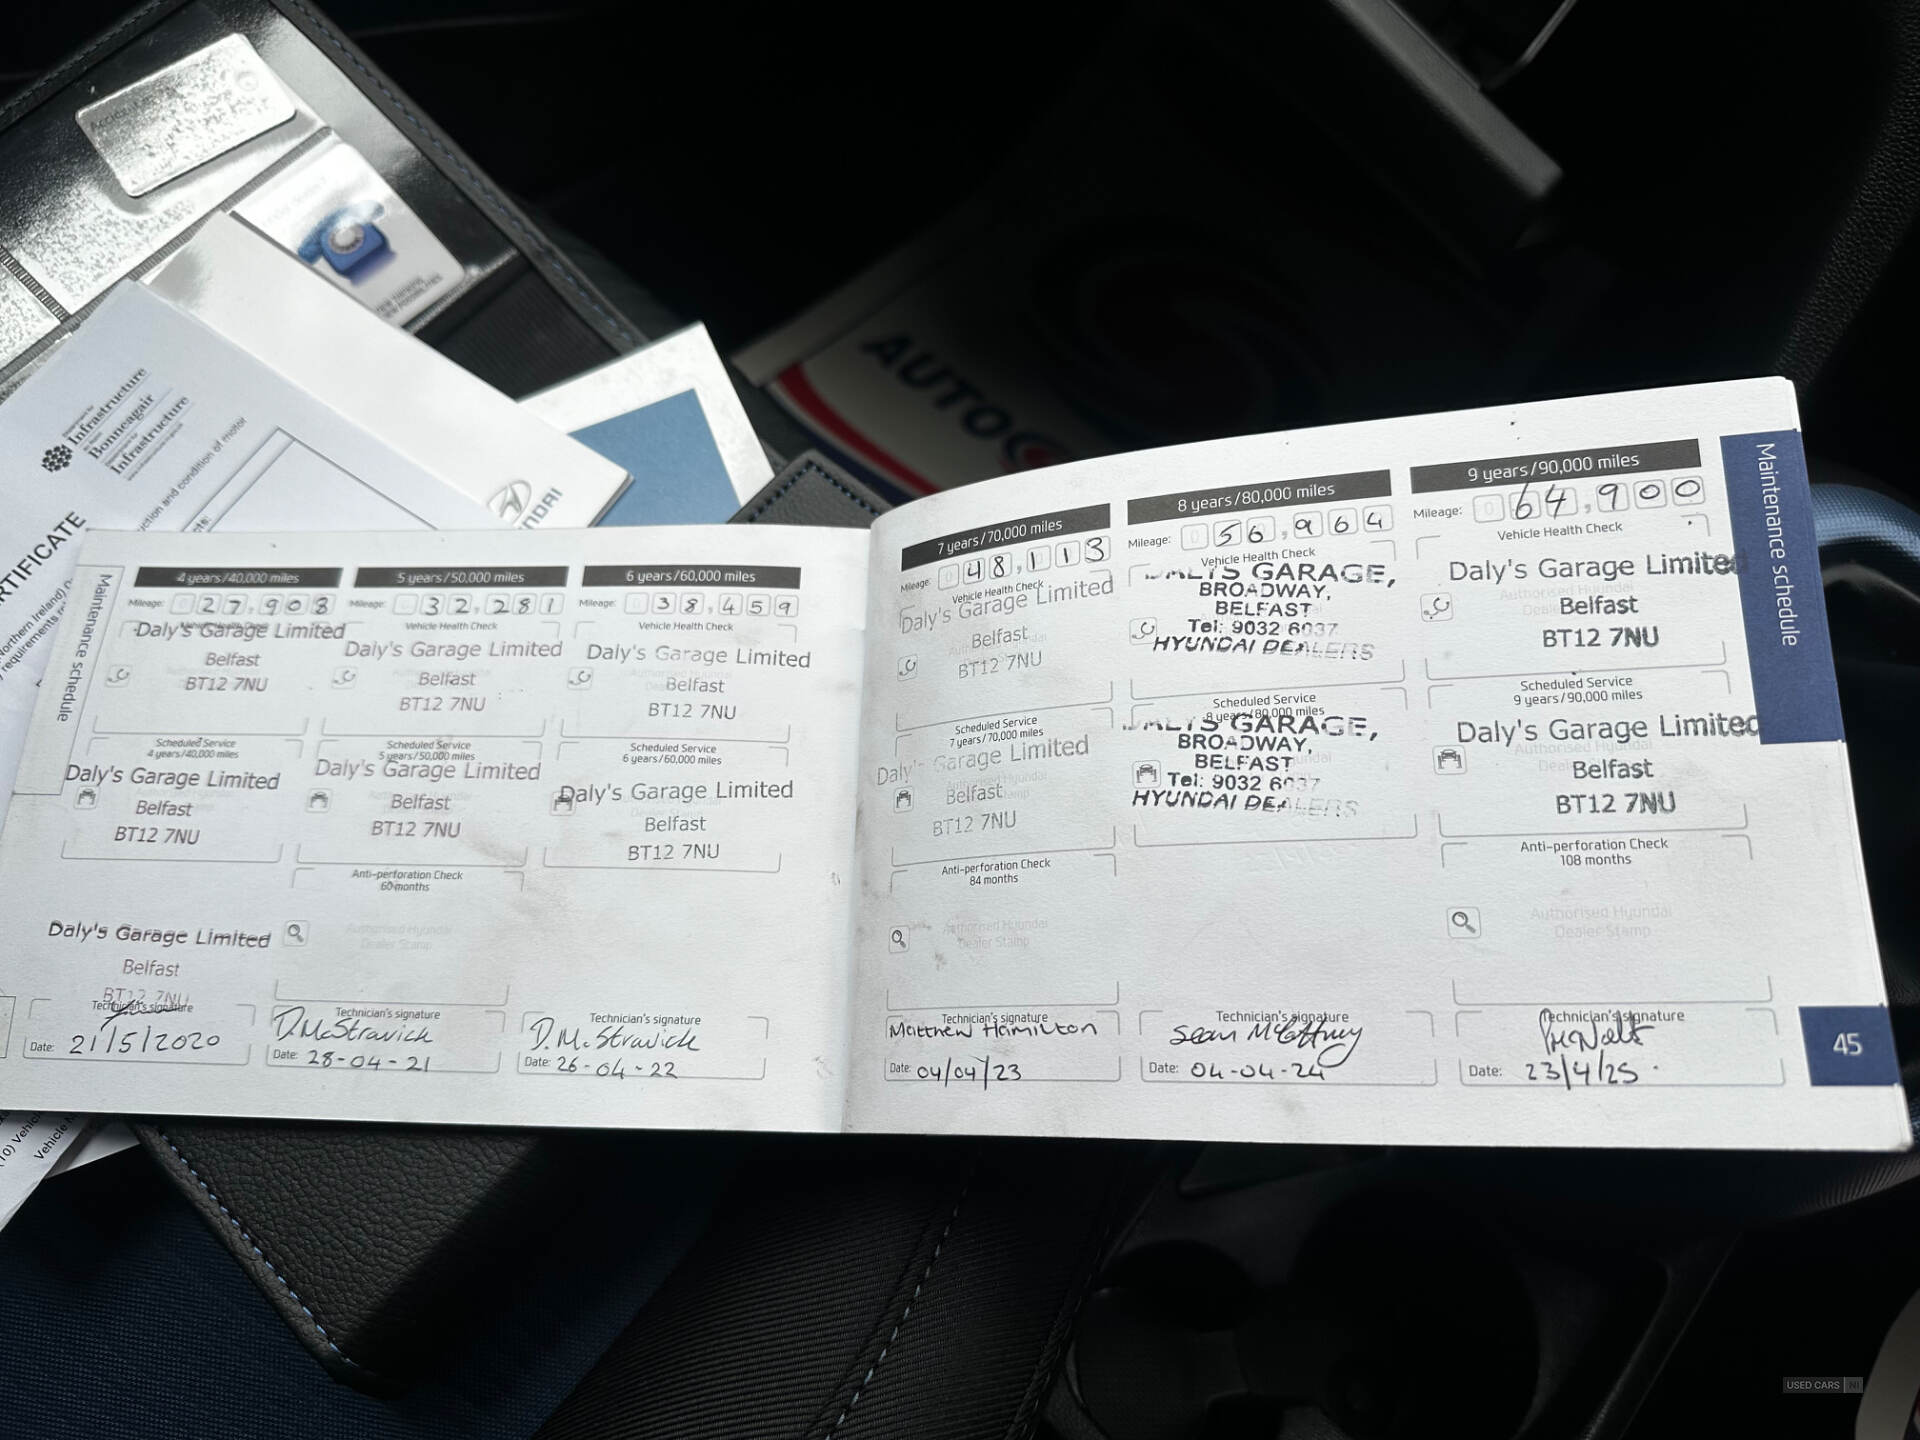 Infrastructure
Bonneagair
Infrastructure
uction and condition of motor
RTIFICATE
Northern Ireland)
requirements
AUTOG
Maintenance schedule
4 years/40,000 miles
Mileage: 0 27,908
Vehicle Health Check
Daly's Garage Limited
Belfast
BT12 7NU
Scheduled Service
4 years/40,000 miles
Daly's Garage Limited
Belfast
BT12 7NU
Daly's Garage Limited
Belfast
BT12 7NU
Technician's signature
Date: 21/5/2020
5 years/50,000 miles
Mileage: 0 32,281
Vehicle Health Check
Daly's Garage Limited
Belfast
BT12 7NU
Scheduled Service
5 years/50,000 miles
Daly's Garage Limited
Belfast
BT12 7NU
Anti-perforation Check
60 months
Authorised Hyundai
Dealer Stamp
Technician's signature
D.McStravick
Date: 28-04-21
6 years/60,000 miles
Mileage: 0 38,459
Vehicle Health Check
Daly's Garage Limited
Belfast
BT12 7NU
Scheduled Service
6 years/60,000 miles
Daly's Garage Limited
Belfast
BT12 7NU
Technician's signature
D.McStravick
Date: 26-04-22
7 years/70,000 miles
Mileage: 0 48,113
Vehicle Health Check
Daly's Garage Limited
Belfast
BT12 7NU
Scheduled Service
7 years/70,000 miles
Daly's Garage Limited
Belfast
BT12 7NU
Anti-perforation Check
84 months
Authorised Hyundai
Dealer Stamp
Technician's signature
Matthew Hamilton
Date: 04/04/23
8 years/80,000 miles
Mileage: 0 56,964
Vehicle Health Check
DALYS GARAGE,
BROADWAY,
BELFAST
Tel: 9032 6037
HYUNDAI DEALERS
Scheduled Service
8 years/80,000 miles
DALYS GARAGE,
BROADWAY,
BELFAST
Tel: 9032 6037
HYUNDAI DEALERS
Technician's signature
Sean McCaffrey
Date: 04-04-24
9 years/90,000 miles
Mileage: 0 64,900
Vehicle Health Check
Daly's Garage Limited
Belfast
BT12 7NU
Scheduled Service
9 years/90,000 miles
Daly's Garage Limited
Belfast
BT12 7NU
Anti-perforation Check
108 months
Authorised Hyundai
Dealer Stamp
Technician's signature
Date: 23/4/25
Maintenance schedule
45
(10) Vehicle
Vehicle
USED CARS NI